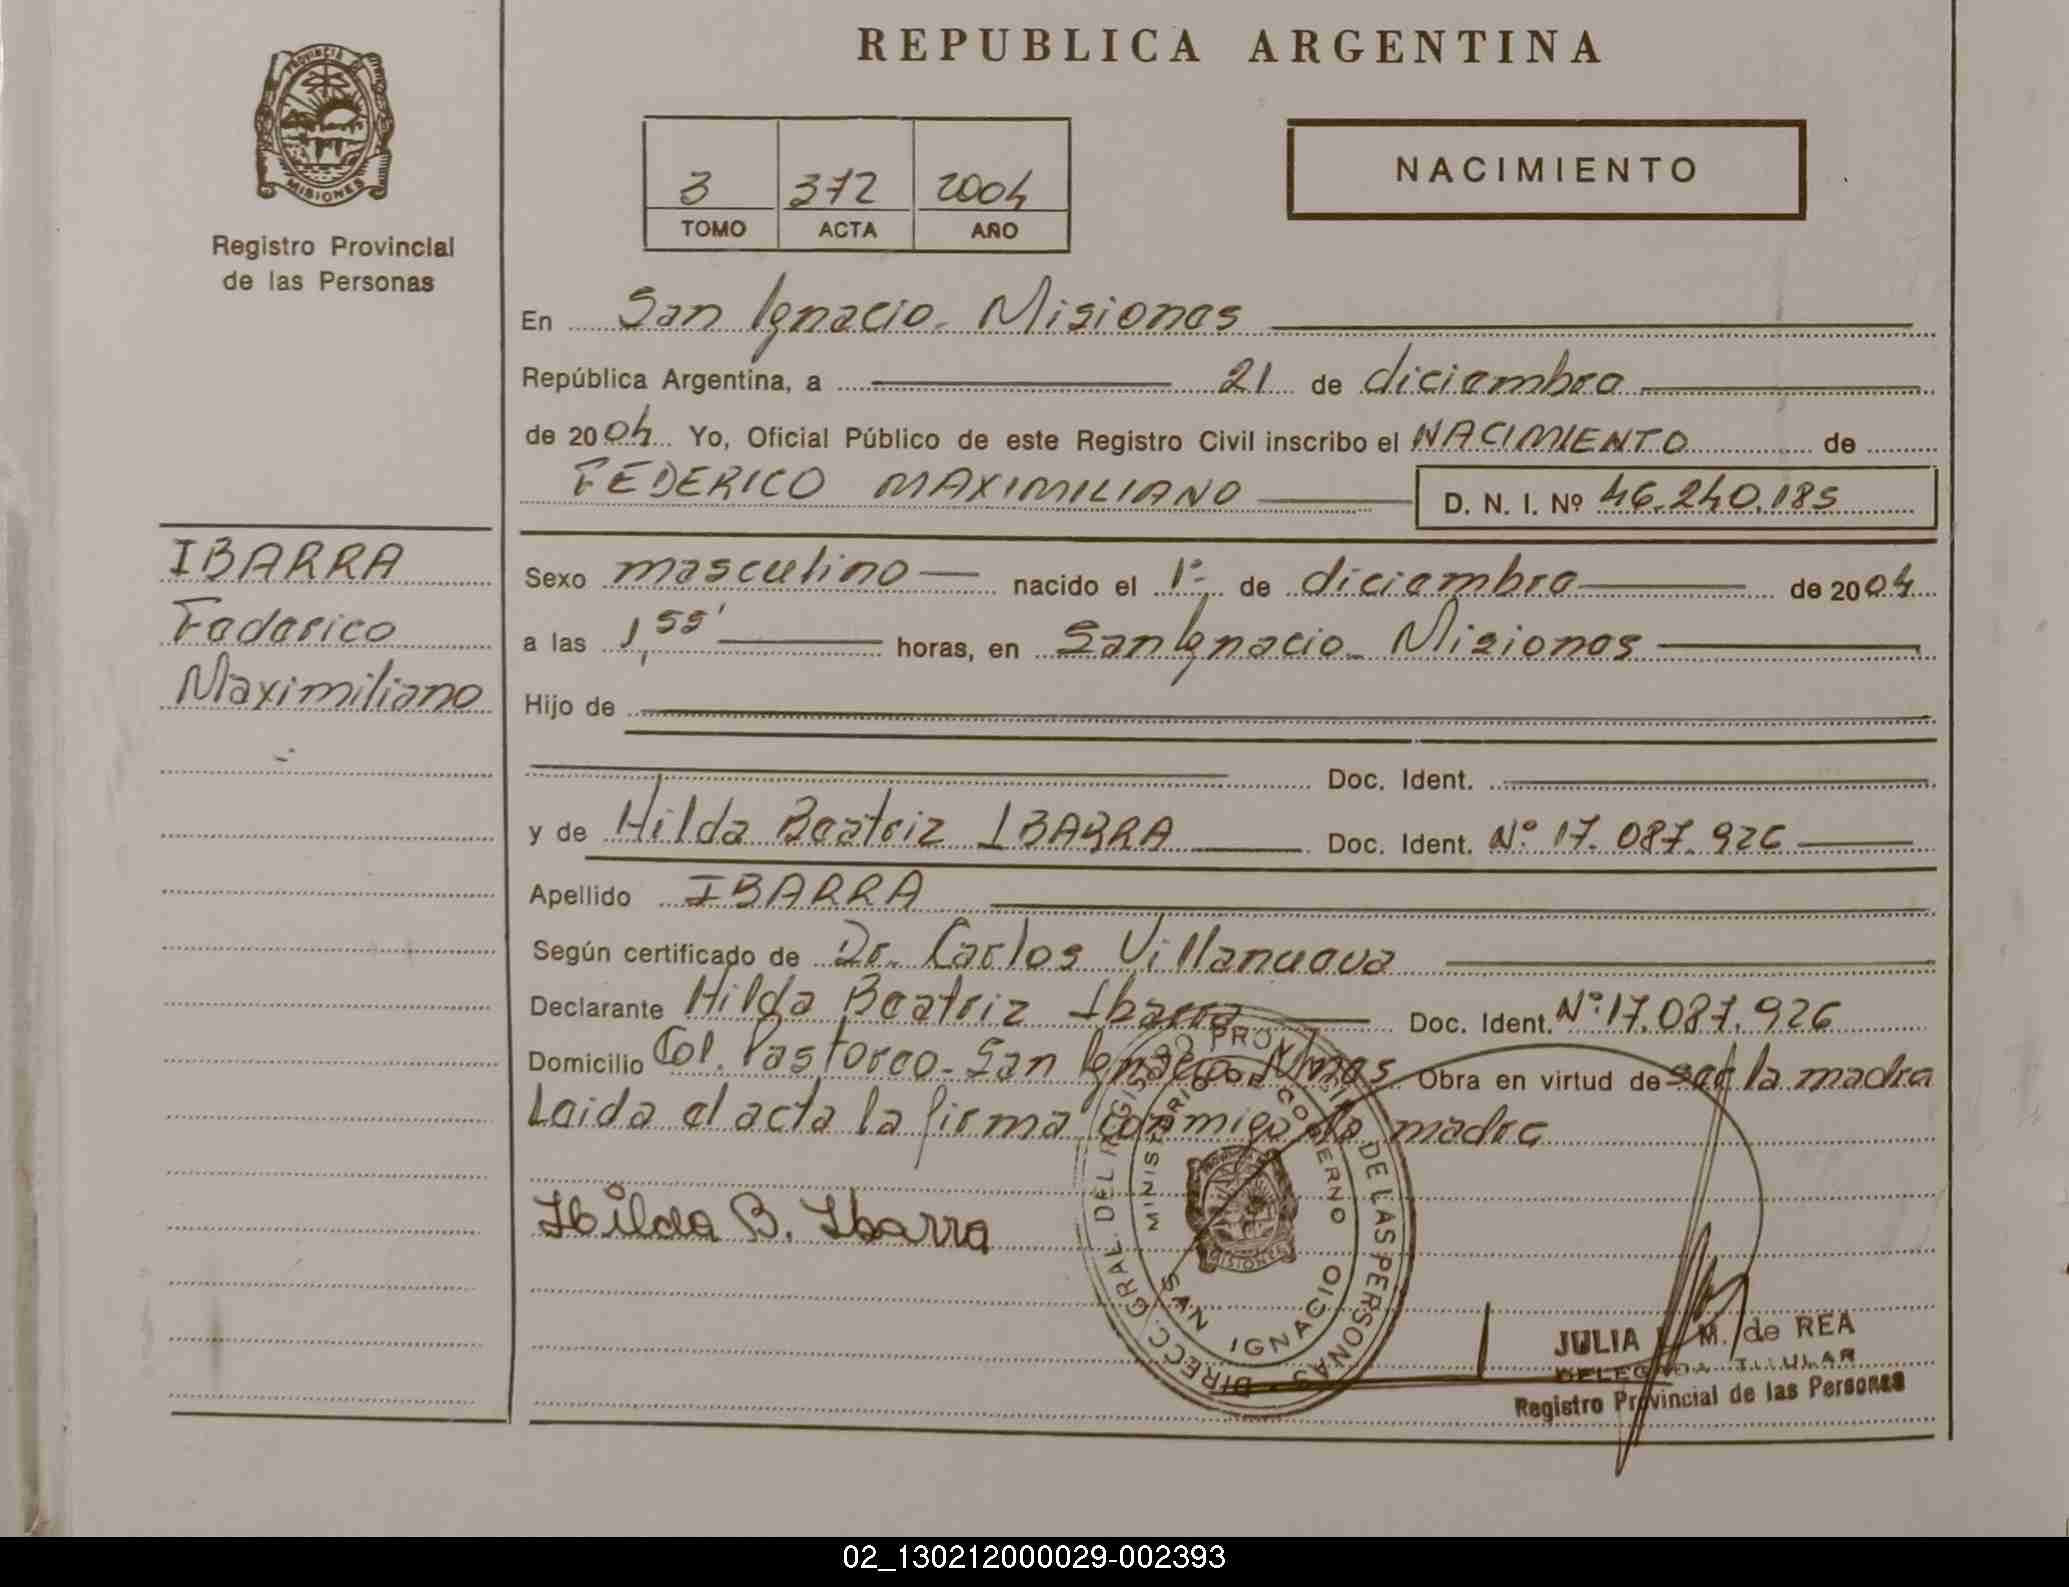 REPUBLICA ARGENTINA
PROVINCIA DE
MISIONES
Registro Provincial
de las Personas
3 372 2004
TOMO ACTA AÑO
NACIMIENTO
En San Ignacio - Misiones
República Argentina, a 21 de diciembre
de 2004 Yo, Oficial Público de este Registro Civil inscribo el NACIMIENTO de
FEDERICO MAXIMILIANO D. N. I. Nº 46.240.185
IBARRA
Federico
Maximiliano
Sexo masculino nacido el 1º de diciembre de 2004
a las 1,55' horas, en San Ignacio - Misiones
Hijo de
Doc. Ident.
y de Hilda Beatriz IBARRA Doc. Ident. Nº 17.087.926
Apellido IBARRA
Según certificado de Dr. Carlos Villanueva
Declarante Hilda Beatriz Ibarra Doc. Ident. Nº 17.087.926
Domicilio Col. Pastoreo - San Ignacio Mnes Obra en virtud de ser la madre
Leida el acta la firma conmigo la madre
Hilda B. Ibarra
DIRECC. GRAL. DEL REGISTRO PROVINCIAL DE LAS PERSONAS
MINISTERIO DE GOBIERNO
SAN IGNACIO
MISIONES
JULIA M. de REA
DELEGADA TITULAR
Registro Provincial de las Personas
02_130212000029-002393